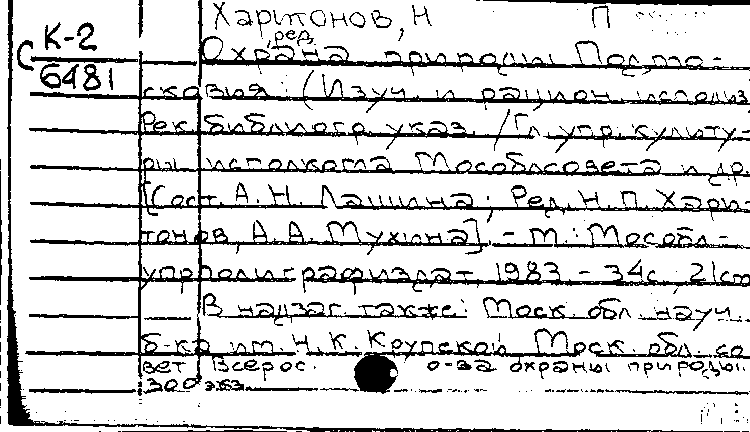 Харитонов, Н П
ред.
К-2
6481
Охрана природы Подмо-
сковия: (Изуч. и рацион. использ
Рек. библиогр. указ. / Гл. упр. культу-
ры исполкома Мособлсовета и др.
[Сост. А. Н. Лашина; Ред. Н. П. Хари-
тонов, А. А. Мухина]. - М.: Мособл-
упрполиграфиздат, 1983. - 34с.; 21см
В надзаг. также: Моск. обл. науч.
б-ка им. Н. К. Крупской, Моск. обл. со
вет Всерос. о-ва охраны природы.
300 экз.